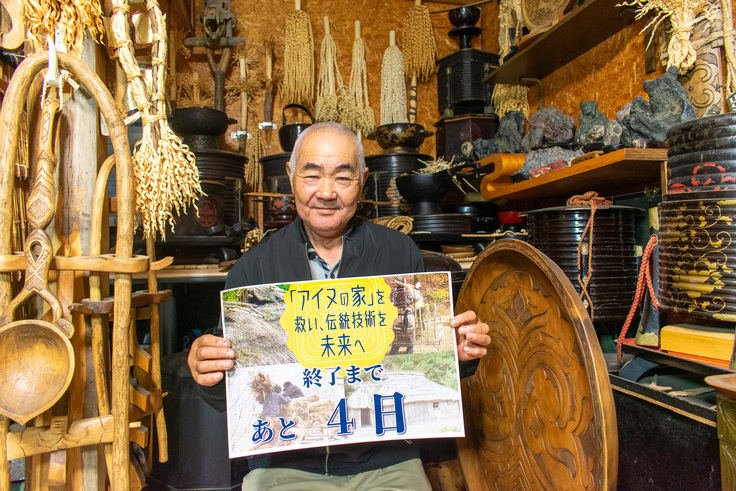 「アイヌの家」を
救い、伝統技術を
未来へ
終了まで
あと 4日